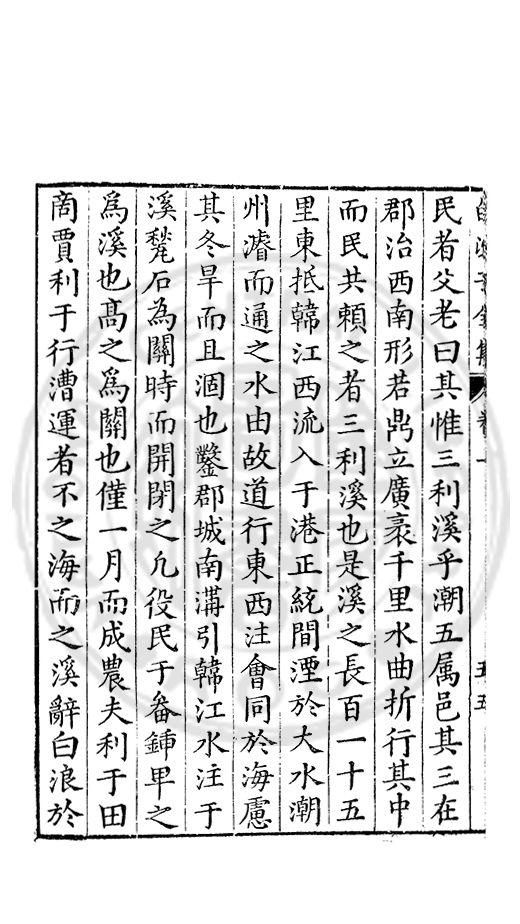 民者父老曰其惟三利溪乎潮五属邑其三在
郡治西南形若鼎立廣袤千里水曲折行其中
而民共頼之者三利溪也是溪之長百一十五
里東抵韓江西流入于港正統間湮於大水潮
州濬而通之水由故道行東西注會同於海慮
其冬旱而且涸也鑿郡城南溝引韓江水注于
溪甃石為關時而開閉之凡役民于畚鍤畢之
為溪也髙之為關也僅一月而成農夫利于田
商賈利于行漕運者不之海而之溪辭白浪於